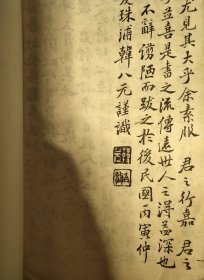 尤見其大乎余素服　君之行嘉　君之
益喜是書之流傳遠世人之得益深也
不辭謭陋而跋之於後民國丙寅仲
及珠浦韓八元謹識